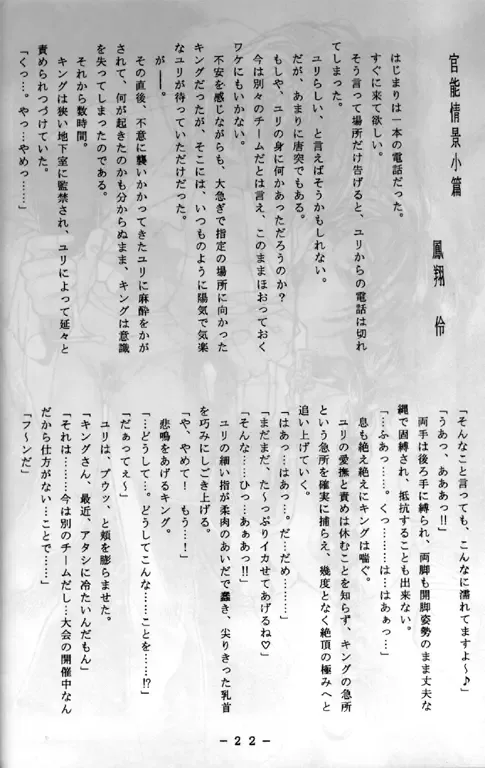 官能情景小篇
鳳翔 伶
はじまりは一本の電話だった。
すぐに来て欲しい。
そう言って場所だけ告げると、ユリからの電話は切れ
てしまった。
ユリらしい、と言えばそうかもしれない。
だが、あまりに唐突でもある。
もしや、ユリの身に何かあっただろうのか?
今は別々のチームだとは言え、このままほおっておく
ワケにもいかない。
不安を感じながらも、大急ぎで指定の場所に向かった
キングだったが、そこには、いつものように陽気で気楽
なユリが待っていただけだった。
が――。
その直後、不意に襲いかかってきたユリに麻酔をかが
されて、何が起きたのかも分からぬまま、キングは意識
を失ってしまったのである。
それから数時間。
キングは狭い地下室に監禁され、ユリによって延々と
責められつづけていた。
「くっ…。やっ…やめっ……」
「そんなこと言っても、こんなに濡れてますよ〜♪」
「うあっ、あああっ!!」
両手は後ろ手に縛られ、両脚も開脚姿勢のまま丈夫な
縄で固縛され、抵抗することも出来ない。
「…ふあっ…。くっ………は…はあぁっ…」
息も絶え絶えにキングは喘ぐ。
ユリの愛撫と責めは休むことを知らず、キングの急所
という急所を確実に捕らえ、幾度となく絶頂の極みへと
追い上げていく。
「はあっ…はあっ…。だ…だめ………」
「まだまだ、た〜っぷりイカせてあげるね♡」
「そんな……ひっ…あぁあっ!!」
ユリの細い指が柔肉のあいだで蠢き、尖りきった乳首
を巧みにしごき上げる。
「や、やめて! もう…!」
悲鳴をあげるキング。
「…どうして…。どうしてこんな……ことを……!?」
「だぁってぇ〜」
ユリは、プウッ、と頬を膨らませた。
「キングさん、最近、アタシに冷たいんだもん」
「それは………今は別のチームだし…大会の開催中なん
だから仕方がない…ことで……」
「フ〜ンだ」
－２２－